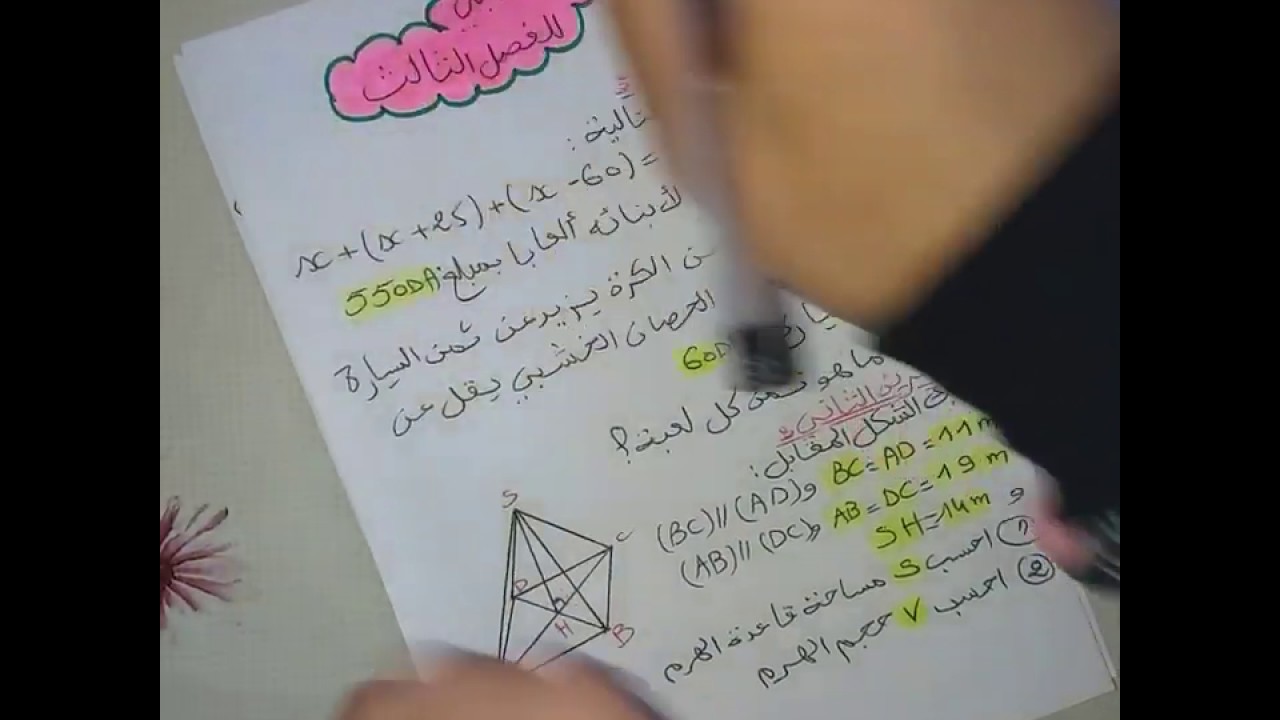 للفصل الثالث
تالية :
x+(x+25)+(x-60)=
لأبنائه ألعابا بمبلغ 550DA
الكرة يزيد عن ثمن السيارة
الحصان الخشبي يقل عن
60D
ما هو ثمن كل لعبة؟
الثاني
الشكل المقابل :
(BC)//(AD) و BC=AD=11m
(AB)//(DC) و AB=DC=19m
و SH=14m
① احسب S مساحة قاعدة الهرم
② احسب V حجم الهرم
S
C
D
H
B